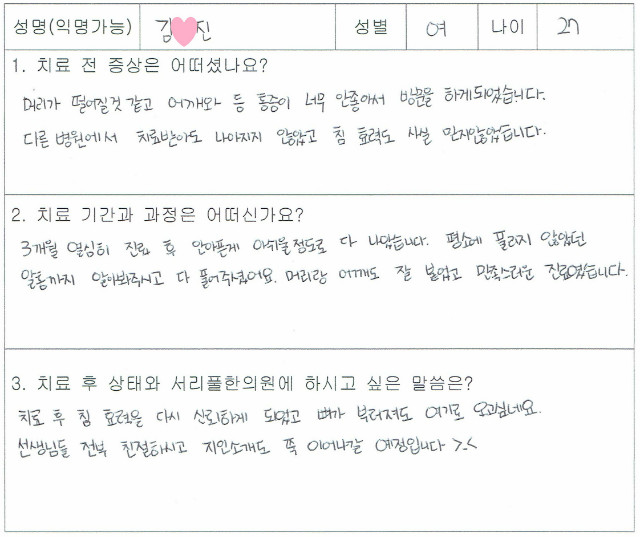 성명(익명가능) 김 진 성별 여 나이 27
1. 치료 전 증상은 어떠셨나요?
머리가 떨어질것 같고 어깨와 등 통증이 너무 안좋아서 방문을 하게되었습니다.
다른 병원에서 치료받아도 나아지지 않았고 침 효력도 사실 믿지않았습니다.
2. 치료 기간과 과정은 어떠신가요?
3개월 열심히 진료 후 안아픈게 아쉬울정도로 다 나았습니다. 평소에 풀리지 않았던
알통까지 알아봐주시고 다 풀어주셨어요. 머리랑 어깨도 잘 붙었고 만족스러운 진료였습니다.
3. 치료 후 상태와 서리풀한의원에 하시고 싶은 말씀은?
치료 후 침 효력을 다시 신뢰하게 되었고 뼈가 부러져도 여기로 오고싶네요.
선생님들 전부 친절하시고 지인소개도 쭉 이어나갈 예정입니다 >_<